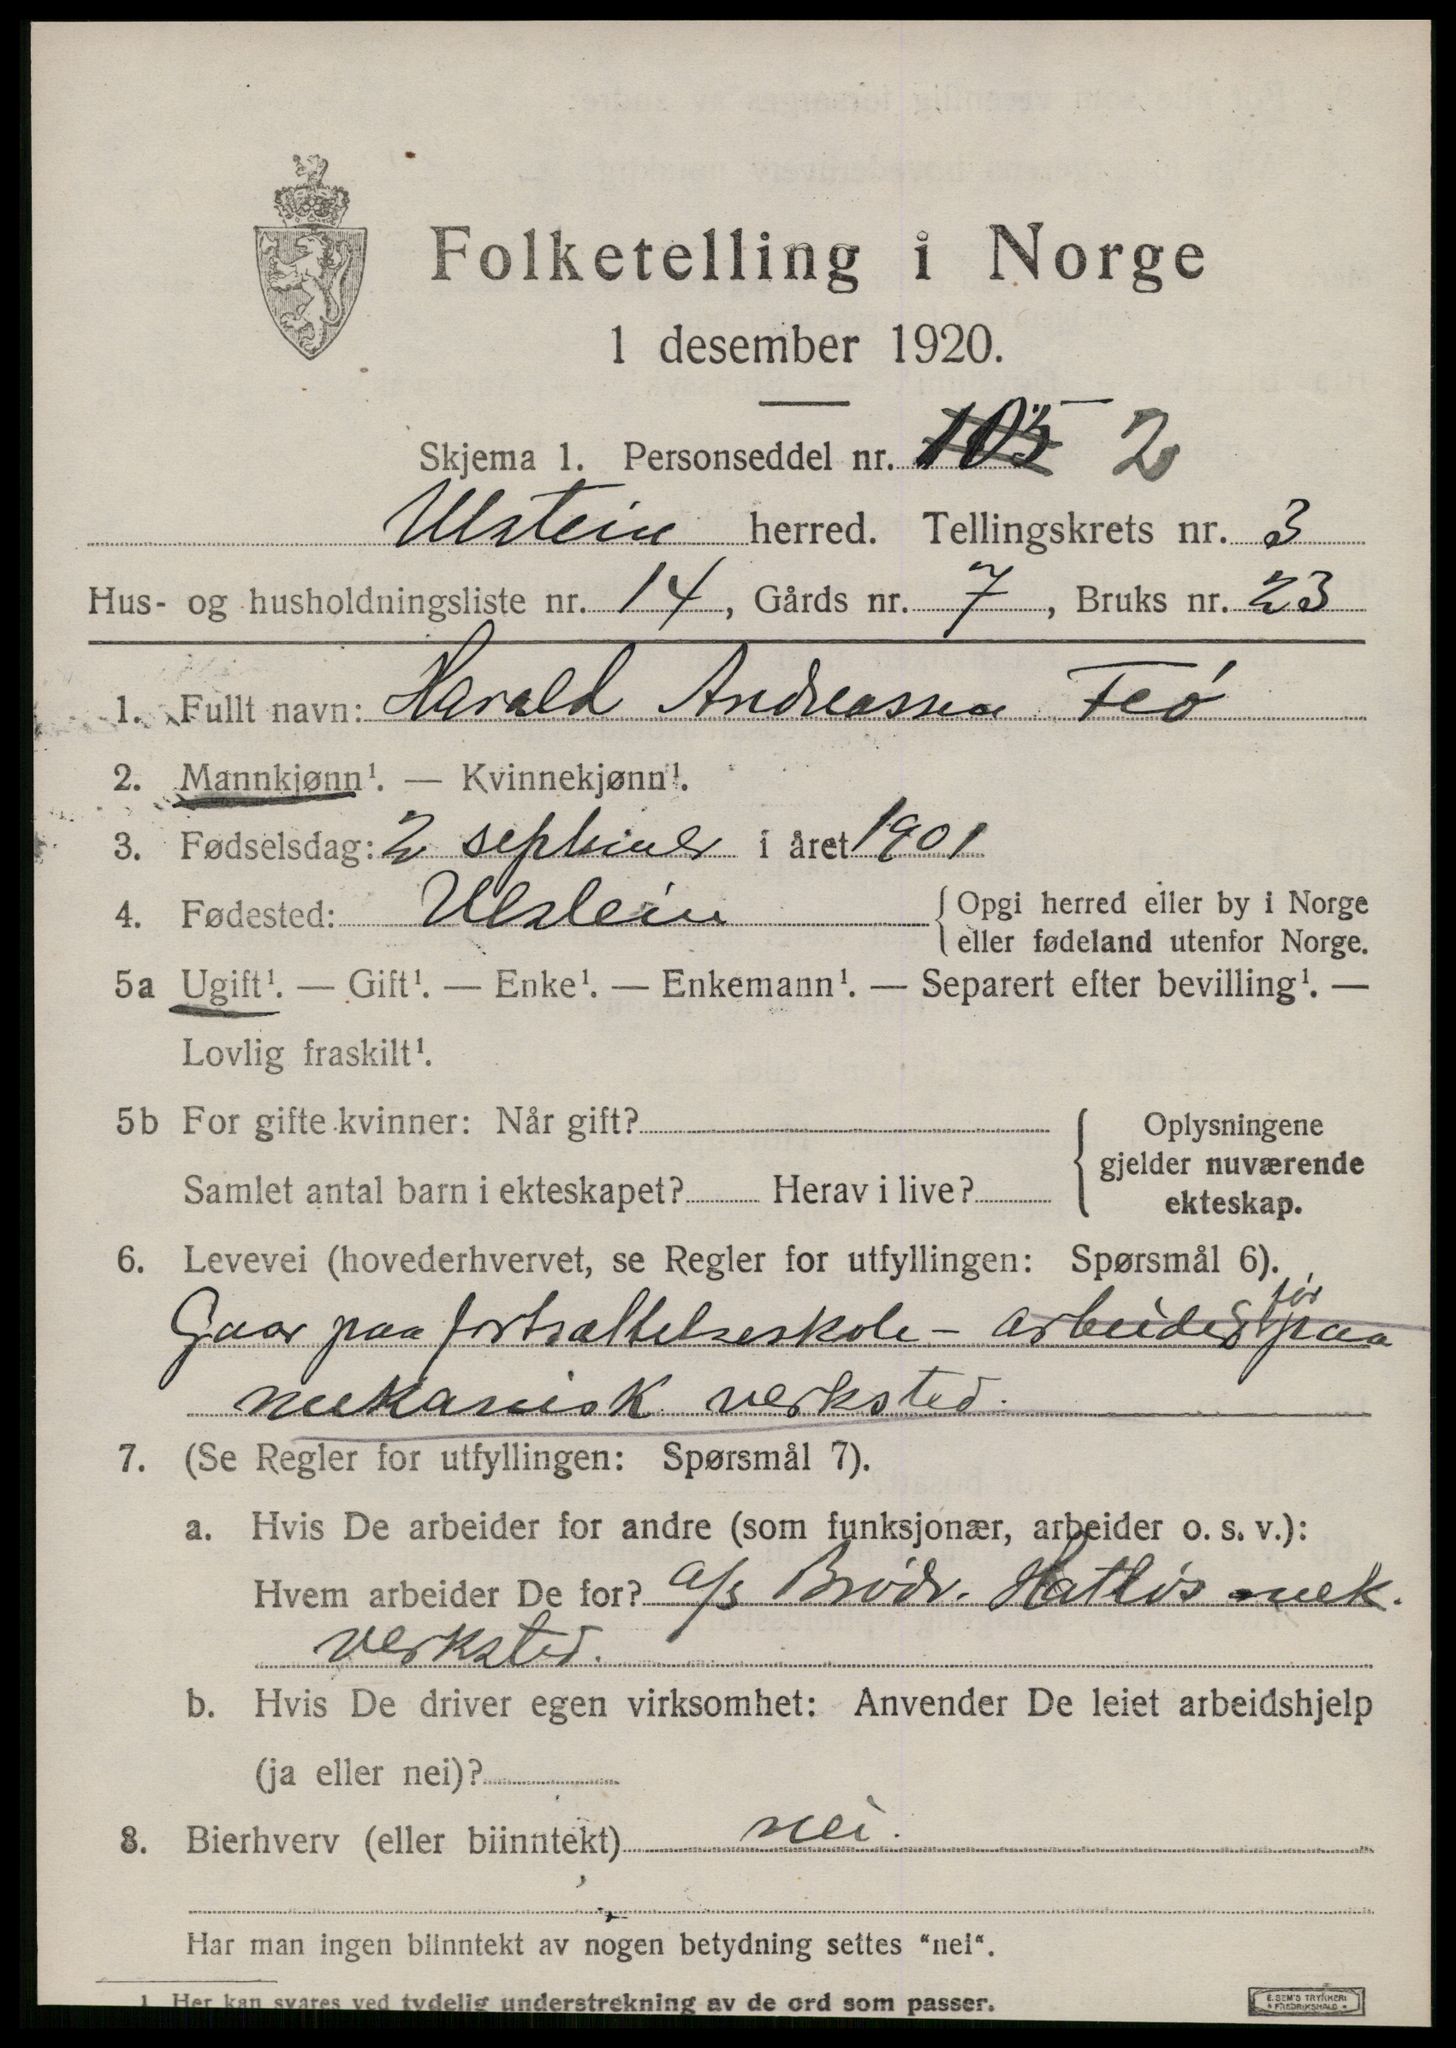 Folketelling i Norge
1 desember 1920.
Skjema 1. Personseddel nr. 2
Ulstein herred. Tellingskrets nr. 3
Hus- og husholdningsliste nr. 14, Gårds nr. 7, Bruks nr. 23
1. Fullt navn: Harald Andreassen Flø
2. Mannkjønn¹. — Kvinnekjønn¹.
3. Fødselsdag: 2 septimer i året 1901
4. Fødested: Ulstein
{ Opgi herred eller by i Norge
eller fødeland utenfor Norge.
5a Ugift¹. — Gift¹. — Enke¹. — Enkemann¹. — Separert efter bevilling¹. —
Lovlig fraskilt¹.
5b For gifte kvinner: Når gift?
Samlet antal barn i ekteskapet? Herav i live?
{ Oplysningene
gjelder nuværende
ekteskap.
6. Levevei (hovederhvervet, se Regler for utfyllingen: Spørsmål 6).
Gaar paa fortsættelseskole – arbeider før paa
mekanisk verksted.
7. (Se Regler for utfyllingen: Spørsmål 7).
a. Hvis De arbeider for andre (som funksjonær, arbeider o. s. v.):
Hvem arbeider De for? a/s Brødr. Hatløs mek.
verksted.
b. Hvis De driver egen virksomhet: Anvender De leiet arbeidshjelp
(ja eller nei)?
8. Bierhverv (eller biinntekt) nei.
Har man ingen biinntekt av nogen betydning settes "nei".
1 Her kan svares ved tydelig understrekning av de ord som passer.
E. SEM'S TRYKKERI
FREDRIKSHALD